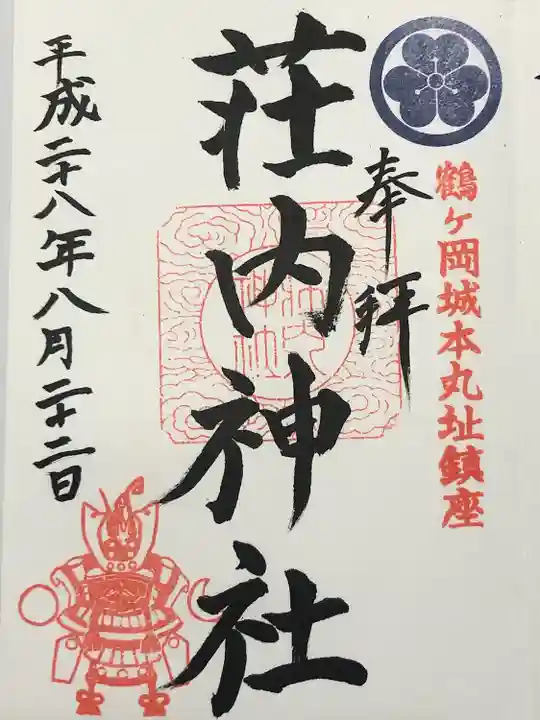 鶴ヶ岡城本丸址鎮座
奉拝
荘内神社
荘内
神社
平成二十八年八月二十二日